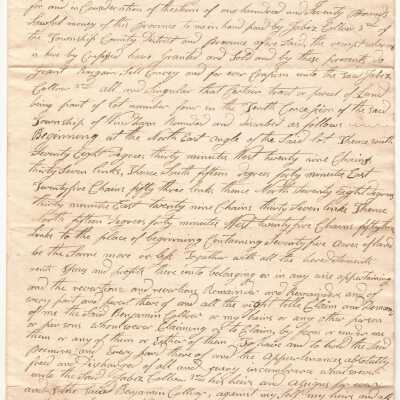 for and in Consideration of the sum of one hundred and Seventy Pounds
lawful money of this Province to me in hand paid by Jabez Collver of
the Township County District and Province afore Said, the receipt whereof
is here by Confessed have Granted and Sold and by these presents do
Grant Bargain Sell Convey and for ever Confirm unto the Said Jabez
Collver all and Singular that Certain tract or parcel of Land
being part of Lot number four in the Concession of the Said
Township of Windham and described as follows
Beginning at the North East angle of the Said Lot. Thence South
Seventy Eight degrees thirty minutes West twenty nine Chains
thirty Seven links, thence South fifteen degrees forty minutes East
Twentyfive Chains fifty three links thence North Seventy Eight degrees
thirty minutes East twenty nine Chains thirty Seven links Thence
North fifteen degrees forty minutes West twenty five Chains fifty three
links to the place of beginning Containing Seventy five acres of land
be the Same more or less Together with all the
and profits there unto belonging or in any wise appertaining
and the reversions and Remainder and Remainders and of
every part and parcel there of and all the right title Claim and
of me the Said Benjamin Collver or my heirs or any other person
or persons whomsoever Claiming or to Claim, by from or under me
them or any of them or Either of them To have and to hold the Said
Premises and Every part there of and the Appurtenances absolutely
free and discharged of all and every incumbrance whatsoever
unto the Said Jabez Collver his heirs and assigns for ever
and I the Said Benjamin Collver, against my Self my heirs and all